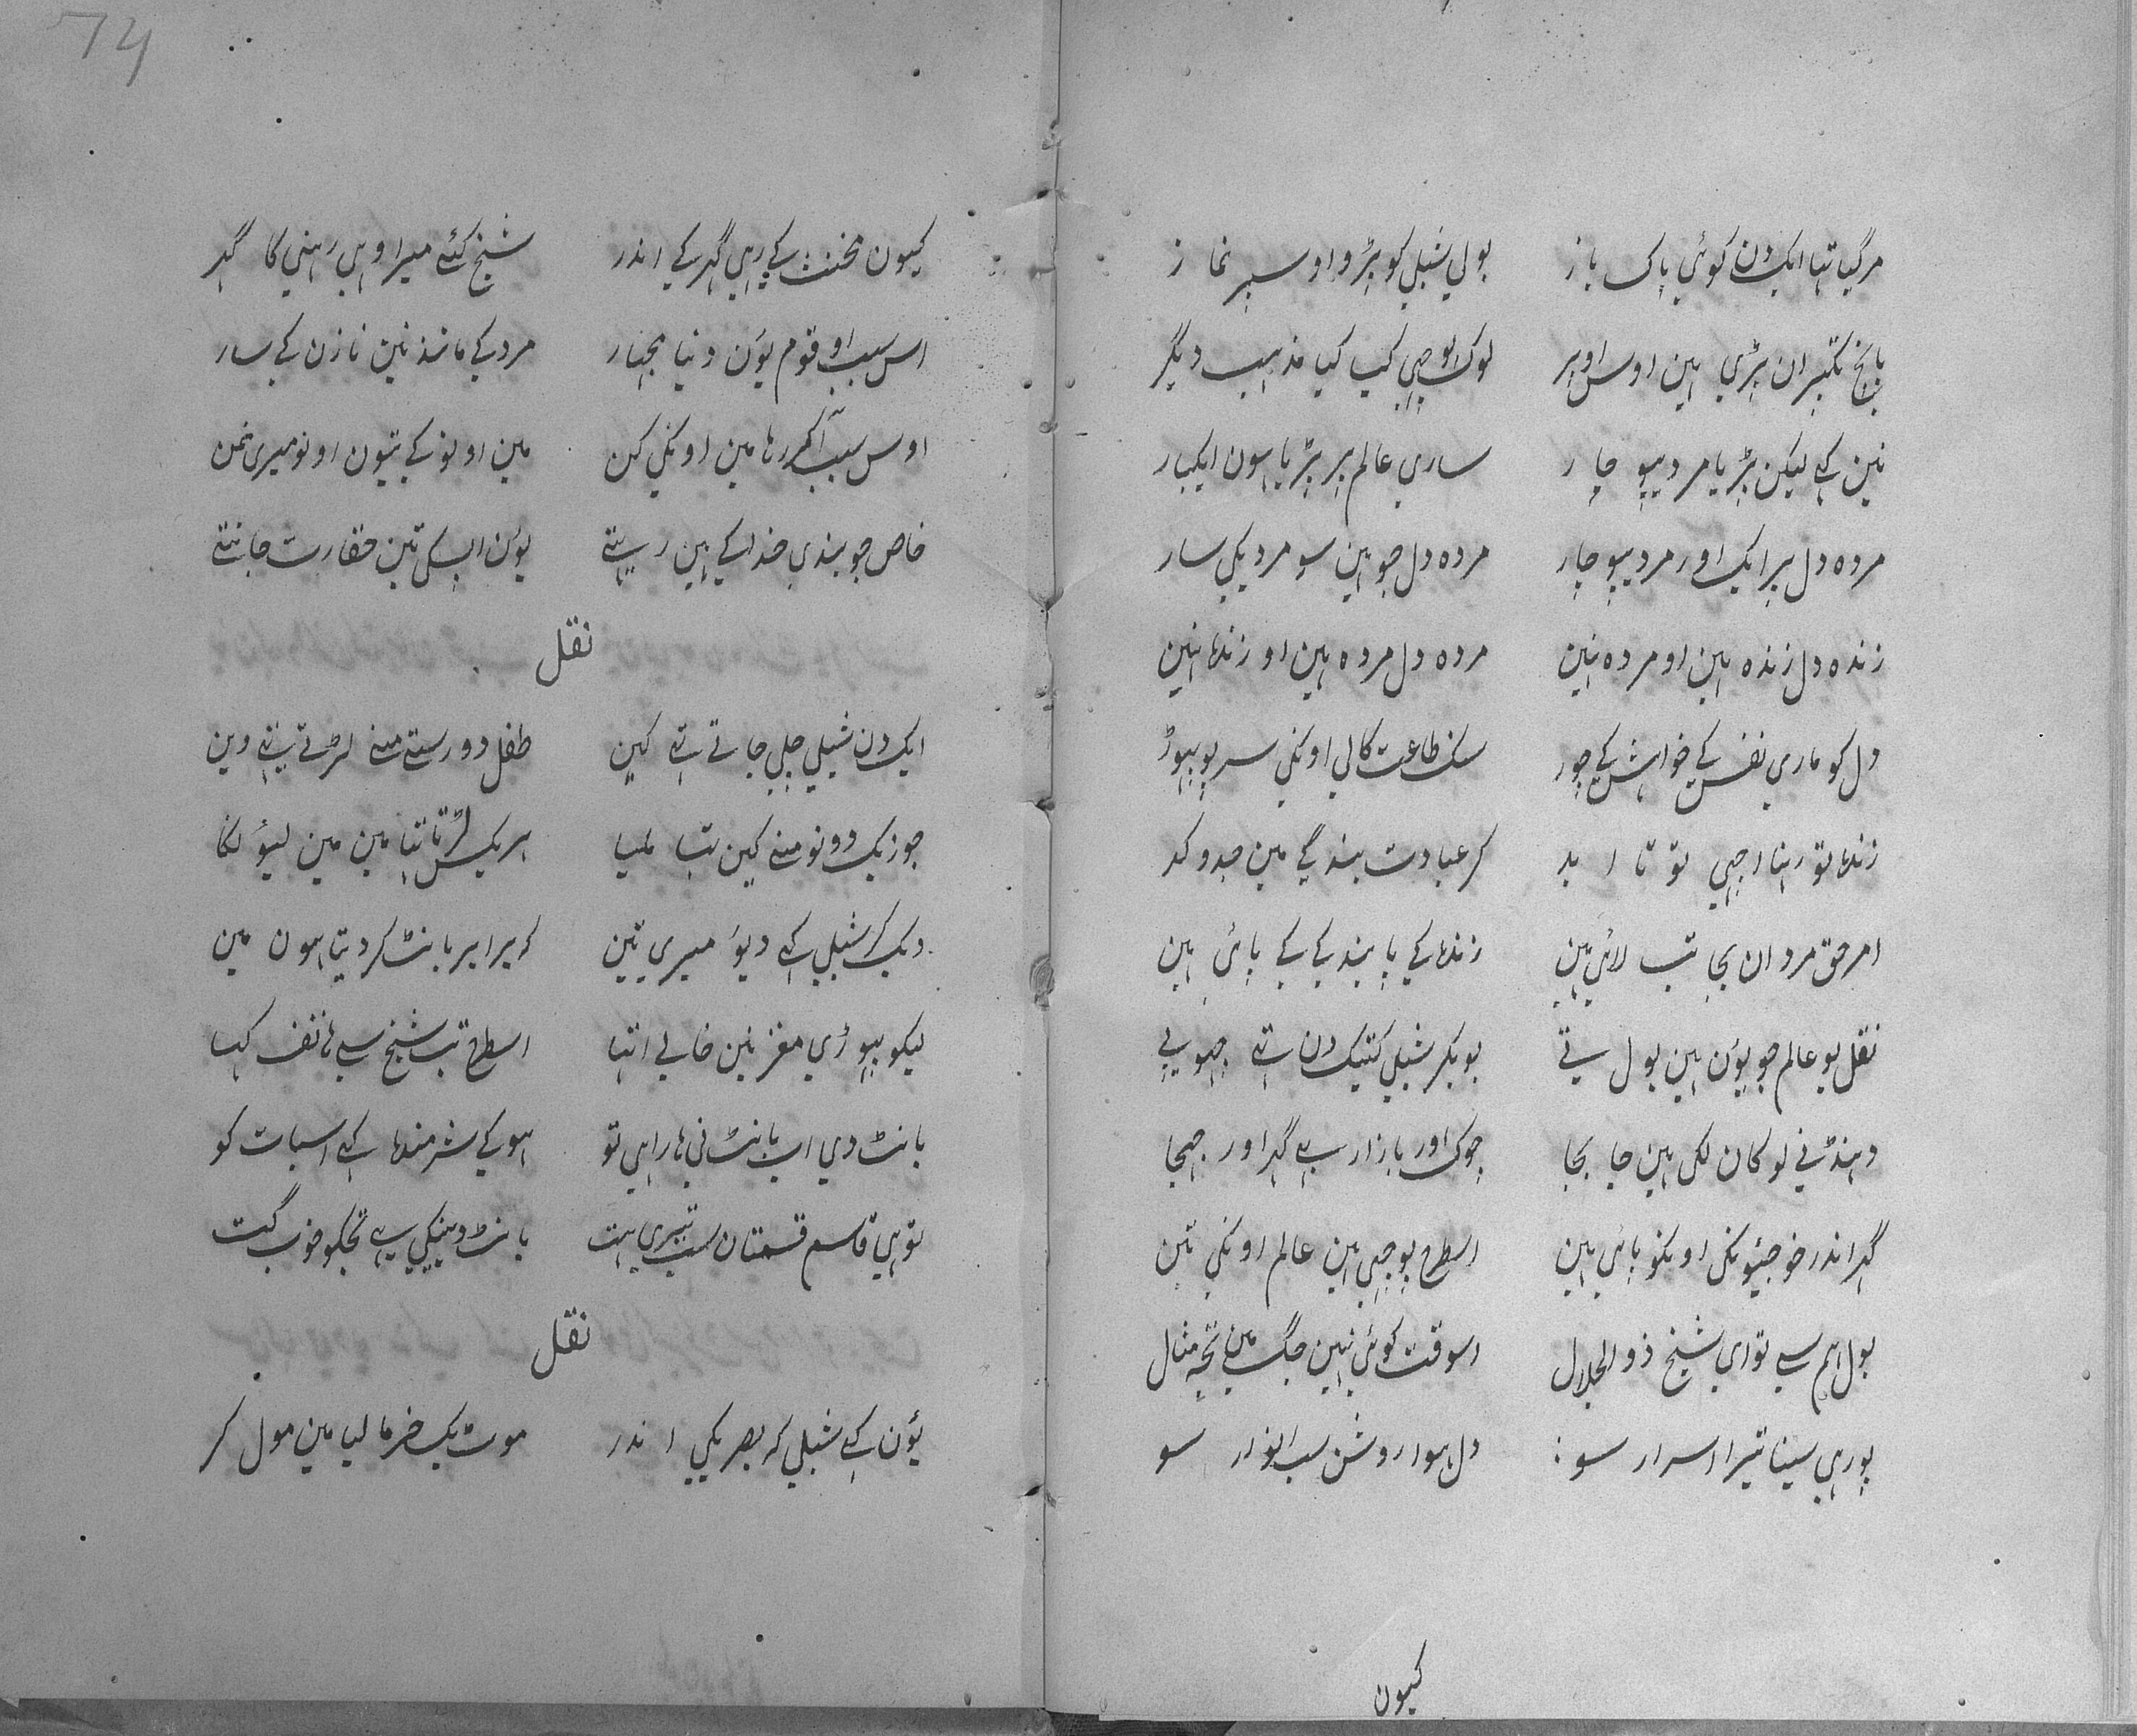 مرگیا تہا ایک دن کوئی پاک باز بولی شبلی کو پڑو اوسپر نماز
پانچ تکبیران پڑی ہین اوس اوپر لوک پوچہی کیا کیا مذہب دیگر
نین کہے لیکن پڑیا مردیپو چار ساری عالم پر پڑیا ہون ایکبار
مردہ دل پر ایک اور مردیپو چار مردہ دل جو ہین سو مردیکی سار
زندہ دل زندہ ہین او مردہ نین مردہ دل مردہ ہین او زندہ نین
دل کو ماری نفس کے خواہش کے چور سنک طاعت کا لی اونکی سر پو پہوڑ
زندہ تو رہنا اچہی تو تا ابد کر عبادت بندگی مین جدو کد
امر حق مردان بجا تب لائی ہین زندہ کے پا بندیکے پائی ہین
نقل یو عالم جو یؤن ہین بولتے بوبکر شبلی کتیک دن تہے چہوپے
دہنڈنی لوکان لکی ہین جا بجا چوک اور بازار ہے گہر اور چہجا
گہر اندر خوجیونکی اونکو پائی ہین اسطرح پوچہی ہین عالم اونکی تین
بول ہم سے تو ای شیخ ذوالجلال اسوقت کوئی نہین جگ مین تجہ مثال
پورہی سینا تیرا اسرار سو دل ہوا روشن سب انوار سو
کیون
74
کیون مخنث کے رہی گہر کے اندر شیخ کئے میرا وہی رہنی کا گہر
اس سبب او قوم یؤن دنیا بچہار مرد کے مانند نین نا زن کے سار
اوس سبب آکر رہا مین اونکی کن مین اونو کے تیون اونو میری نمن
خاص جو بندی خدا کے ہین رہتے یؤن اپسکی تین حقارت جانتے
نقل
ایک دن شبلی چلی جاتے تہے کہین طفل دو رستے منے لڑتے تہے وہین
جوز یک دونو منے کہین تہا ملیا ہریکس لڑتا تہا مین مین لیؤنکا
دیک کر شبلی کہے دیؤ میری تین کہ برابر بانٹ کر دیتا ہون مین
لیکو پہوڑی مغز نین خالی اتہا اسطرح تب شیخ سے ہاتف کہا
بانٹ دی اب بانٹ نی ہارا ہی تو ہو کے شرمندہ کہے اس بات کو
تو ہی قاسم قسمتان سب تیری ہت بانٹ دینکی ہے تجکو خوب گت
نقل
یؤن کہے شبلی کہ بصریکی اندر موٹ یک خرما لیا مین مول کر